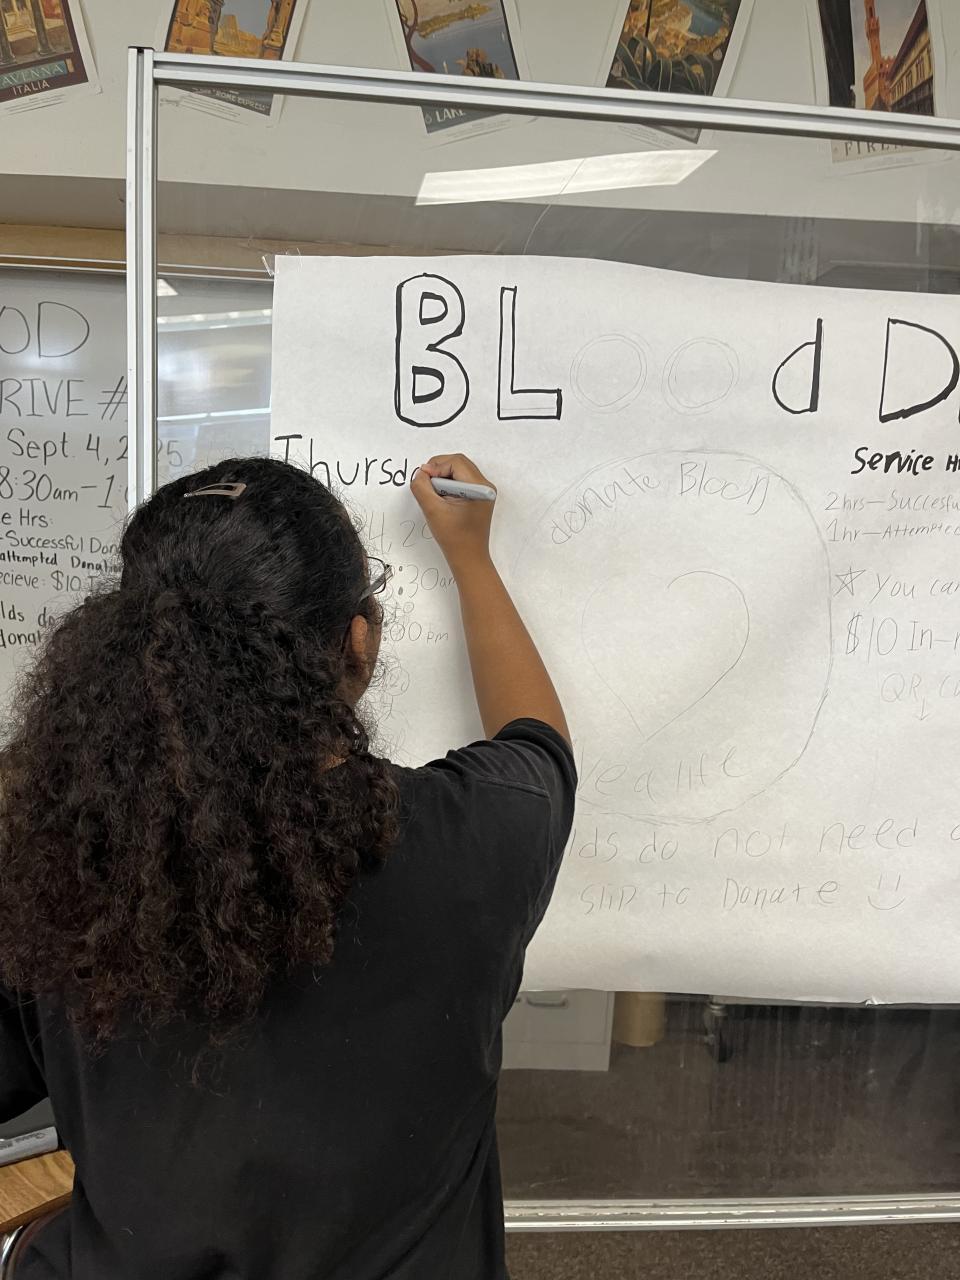 AVENNA
ITALIA
"ROME EXPRESS"
LAKE
FIREN
OD
RIVE #
Sept. 4, 2025
8:30am-1:
e Hrs:
-Successful Don
attempted Donation
ecieve: $10 I
lds do
donat
BLood D
Thursda
4, 20
:30am
to
:00 pm
donate Blood
ve a life
Service H
2hrs-Succesfu
1hr-Attempted
☆ You can
$10 In-
QR Co
↓
lds do not need a
slip to Donate :)